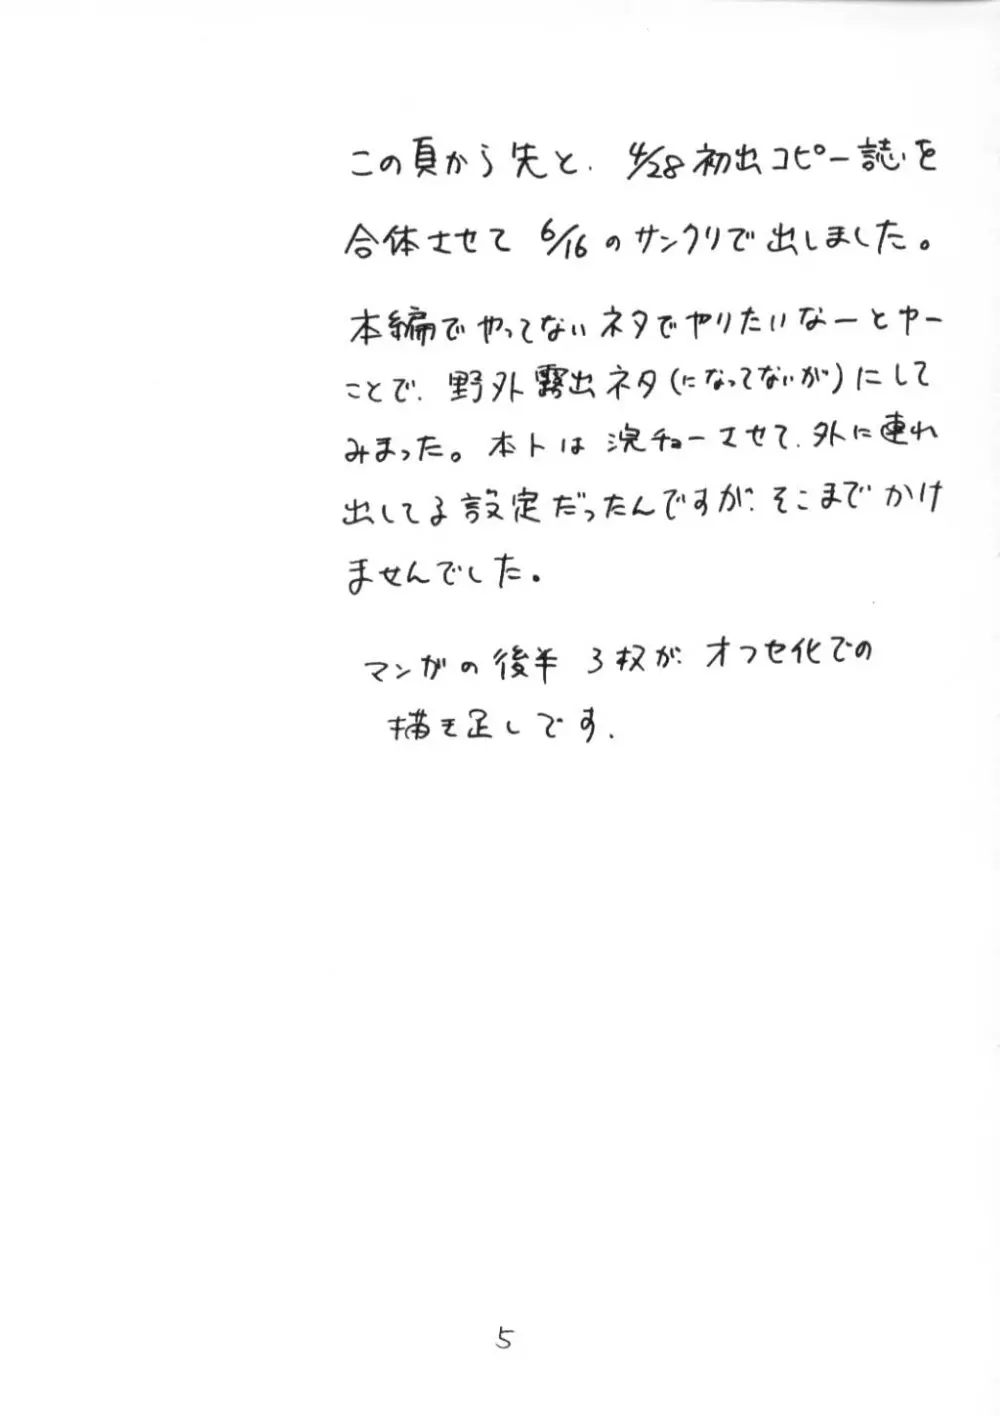 この頁から先と、4/28初出コピー誌を
合体させて6/16のサンクリで出しました。
本編でやってないネタでやりたいなーとゆー
ことで、野外露出ネタ(になってないが)にして
みまった。本トは浣チョーさせて、外に連れ
出してる設定だったんですが、そこまでかけ
ませんでした。
マンガの後半3枚が、オフセ化での
描き足しです.
5